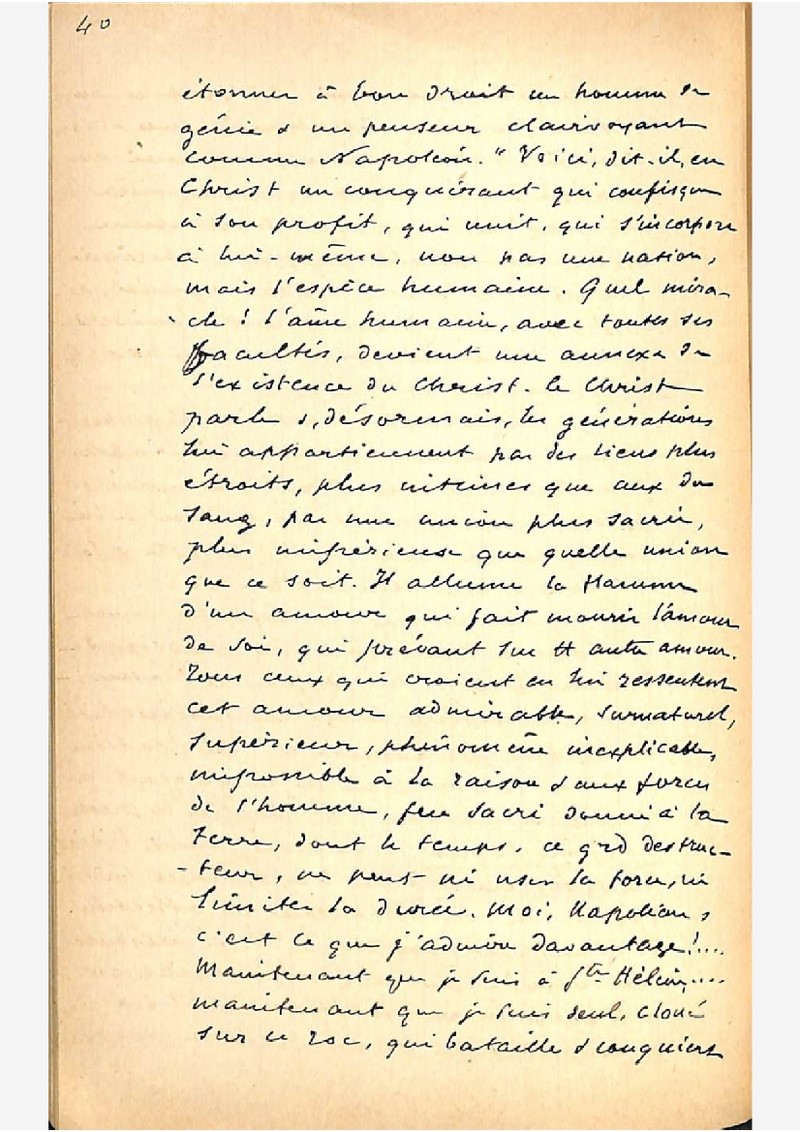 40
étonner à bon droit un homme de
génie & un penseur clairvoyant
comme Napoléon. "Voici, dit-il, en
Christ un conquérant qui confisque
à son profit, qui unit, qui s'incorpore
à lui-même, non pas une nation,
mais l'espèce humaine. Quel mira-
cle ! l'âme humaine, avec toutes ses
facultés, devient une annexe de
l'existence du Christ. Le Christ
parle &, désormais, les générations
lui appartiennent par des liens plus
étroits, plus intimes que ceux du
sang, par une union plus sacrée,
plus impérieuse que quelle union
que ce soit. Il allume la flamme
d'un amour qui fait mourir l'amour
de soi, qui prévaut sur tt autre amour.
Tous ceux qui croient en lui ressentent
cet amour admirable, surnaturel,
supérieur, phénomène inexplicable,
impossible à la raison & aux forces
de l'homme, feu sacré donné à la
terre, dont le temps, ce grd destruc-
-teur, ne peut ni user la force, ni
limiter la durée. Moi, Napoléon,
c'est ce que j'admire davantage !...
Maintenant que je suis à Ste Hélène,...
maintenant que je suis seul, cloué
sur ce roc, qui bataille & conquiert